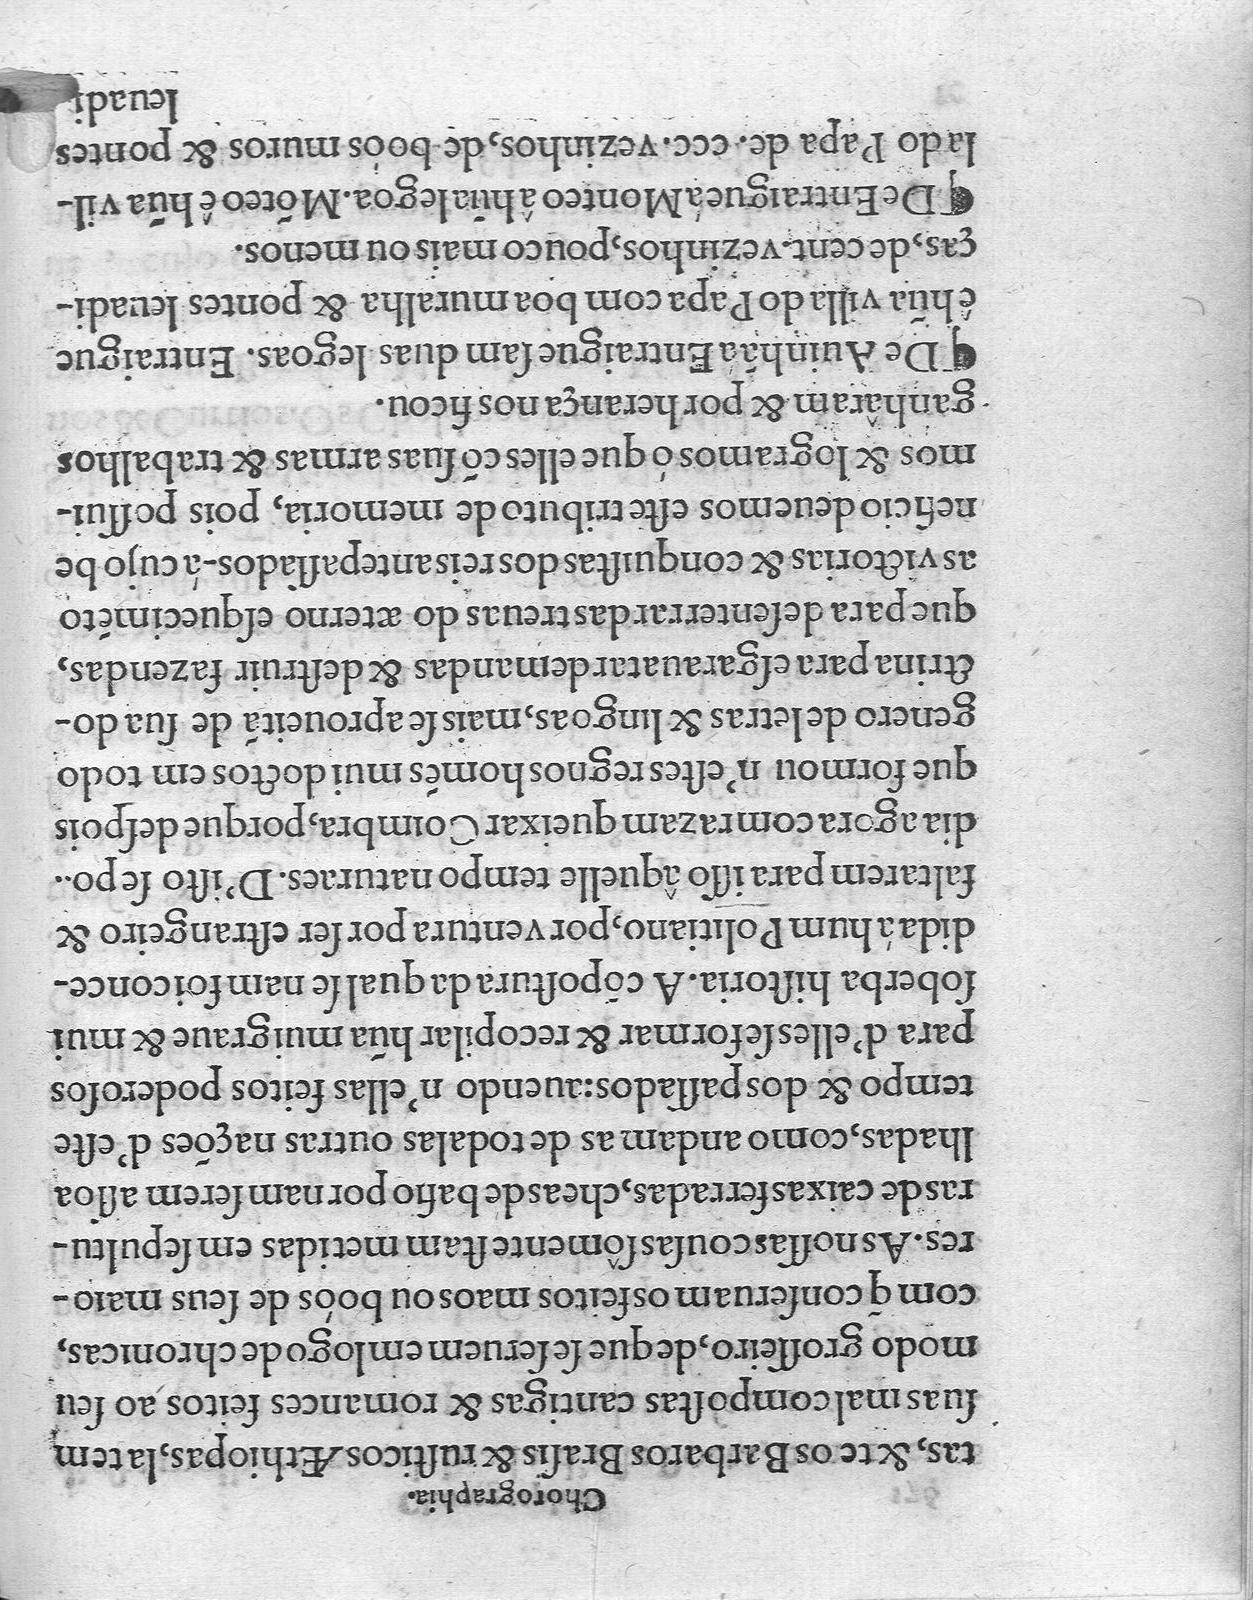 Chorographia.
tas, & te os Barbaros Brasis & rusticos Æthiopas, la tem
suas mal compostas cantigas & romances feitos ao seu
modo grosseiro, de que se seruem em logo de chronicas,
com q̃ conseruam os feitos maos ou boós de seus maio-
res. As nossas cousas sômente stam metidas em sepultu-
ras de caixas ferradas, cheas de bafio por nam serem assoa
lhadas, como andam as de todalas outras nações d'este
tempo & dos passados: auendo n'ellas feitos poderosos
para d'elles se formar & recopilar hũa mui graue & mui
soberba historia. A cõpostura da qual se nam foi conce-
dida á hum Politiano, por ventura por ser estrangeiro &
faltarem para isso âquelle tempo naturaes. D'isto se po..
dia agora com razam queixar Coimbra, porque despois
que formou n'estes regnos homẽs mui doctos em todo
genero de letras & lingoas, mais se aproueitã de sua do-
ctrina para esgarauatar demandas & destruir fazendas,
que para desenterrar das treuas do æterno esquecimẽto
as victorias & conquistas dos reis antepassados - á cujo be
neficio deuemos este tributo de memoria, pois possui-
mos & logramos ó que elles cõ suas armas & trabalhos
ganhâram & por herança nos ficou.
¶ De Auinhã a Entraigue sam duas legoas. Entraigue
ê hũa villa do Papa com boa muralha & pontes leuadi-
ças, de cent. vezinhos, pouco mais ou menos.
¶ De Entraigue á Monteo â hũa legoa. Mõteo ê hũa vil-
la do Papa de. ccc. vezinhos, de boós muros & pontes
leuadi